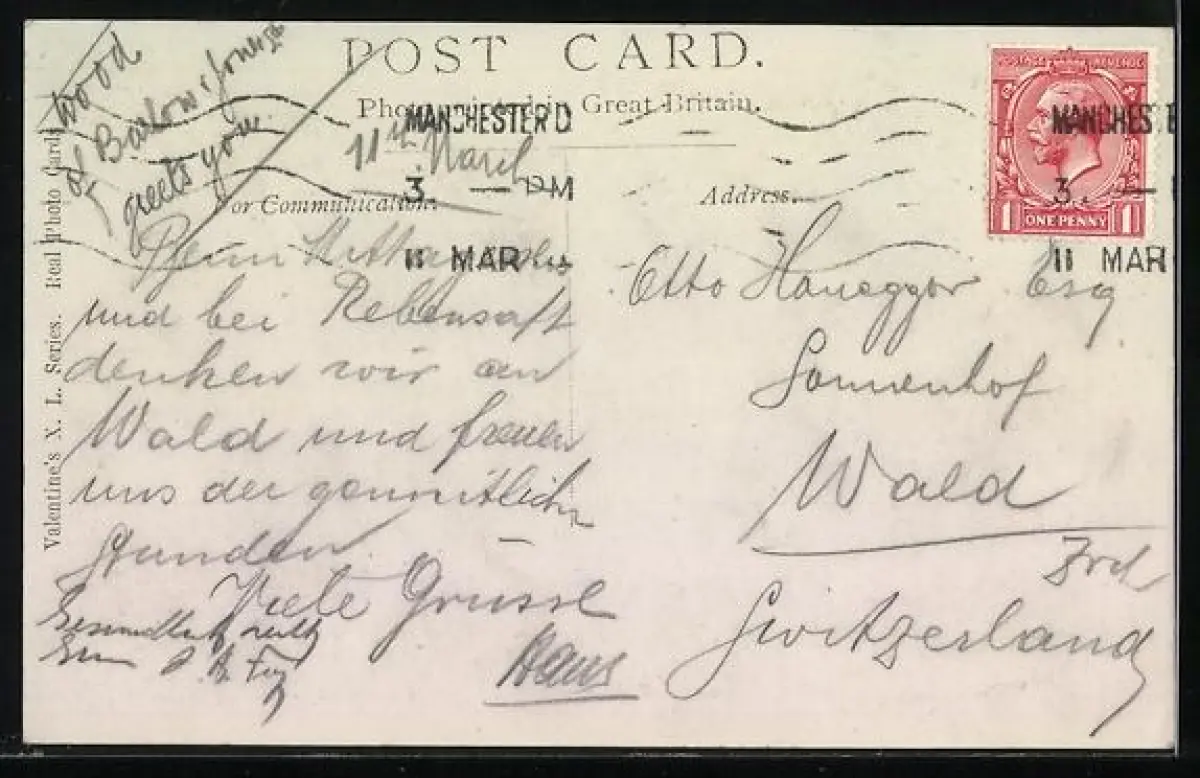 POST CARD.
Photo printed in Great Britain.
Wood
of Barlow & Jones
greets you
11th March
MANCHESTER
3 — PM
11 MAR
For Communication.
Address.
Valentine's X. L. Series. Real Photo Card
und bei Rebensaft
denken wir an
Wald und freuen
uns der gemütlichen
Stunden
Viele Grüsse
Hans
Otto Honegger Esq
Sonnenhof
Wald
Zrch
Switzerland
POSTAGE REVENUE
1 ONE PENNY 1
MANCHESTE
3. —
11 MAR